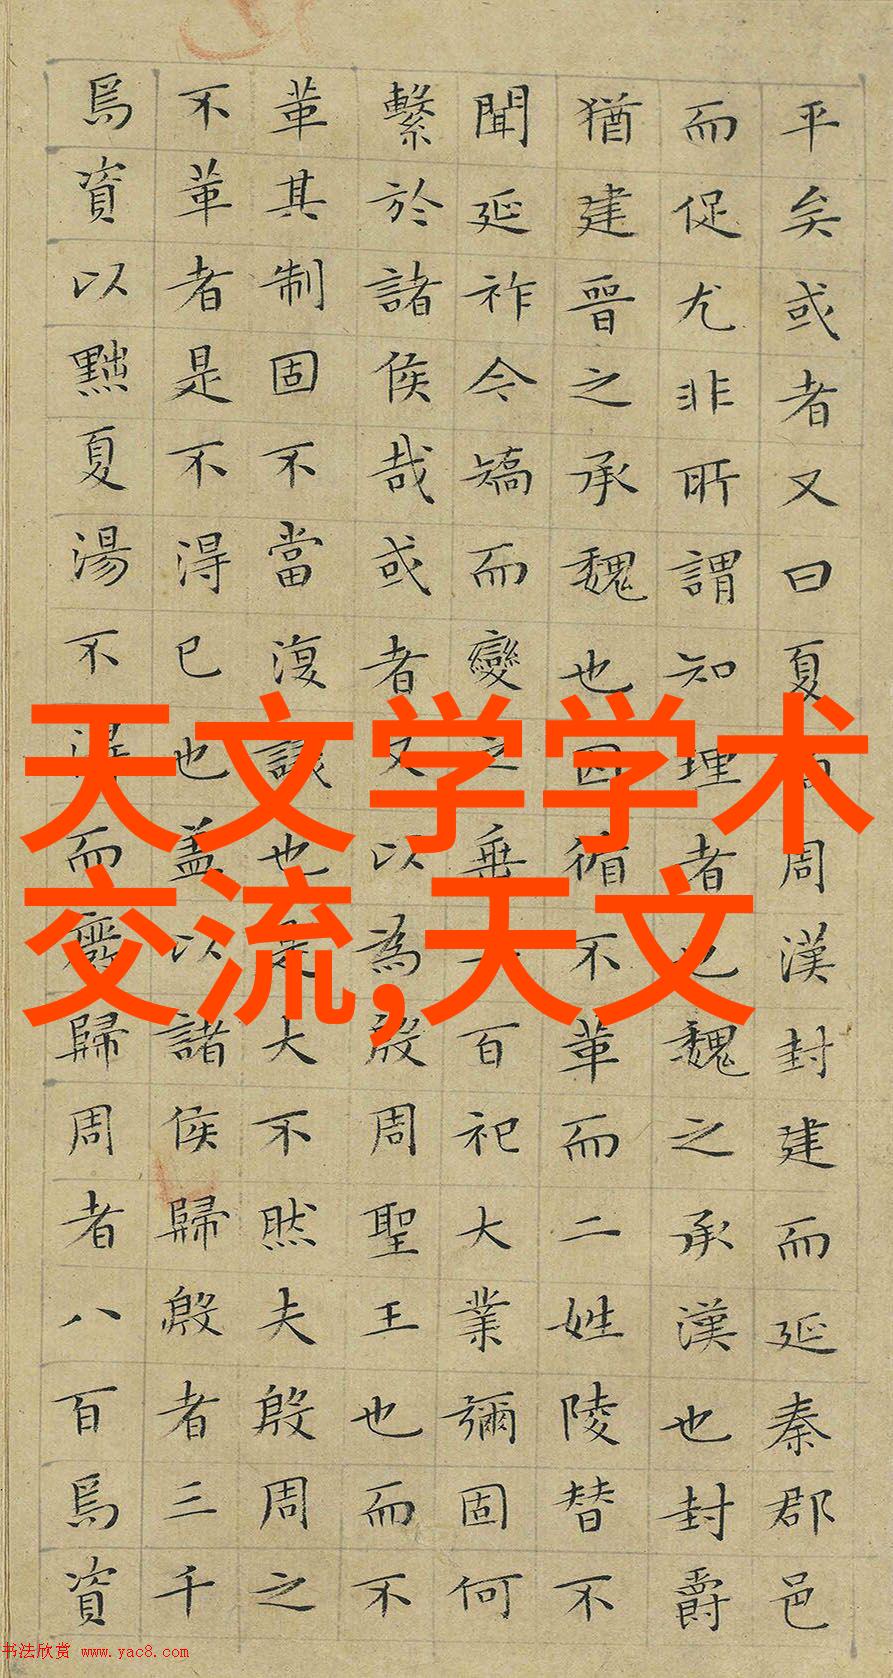 平矣或者又曰夏商周漢封建而延秦郡邑
而促尤非所謂知理者也魏之承漢也封爵
猶建晉之承魏也因循不革而二姓陵替不
聞延祚今矯而變之垂二百祀大業彌固何
繫於諸侯哉或者又以為殷周聖王也而不
革其制固不當復議也是大不然夫殷周之
不革者是不得已也蓋以諸侯歸殷者三千
焉資以黜夏湯不得而廢歸周者八百焉資
天文学学术
交流,天文
书法欣赏 www.yac8.com